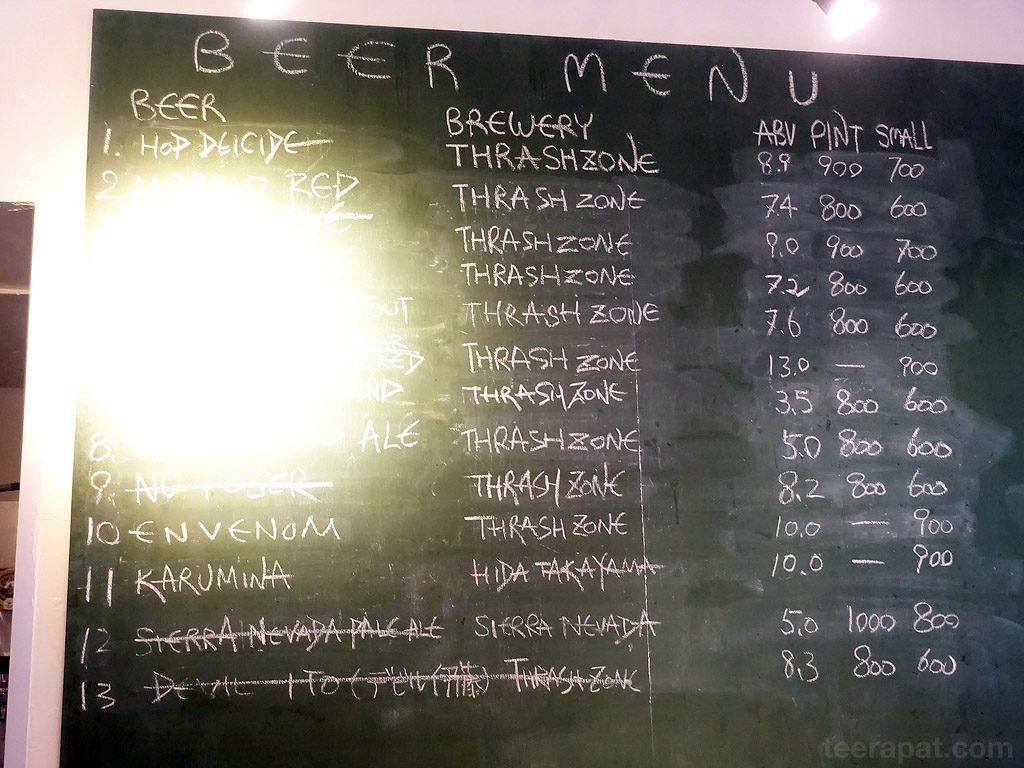 BEER MENU
BEER BREWERY ABV PINT SMALL
1. HOP DEICIDE THRASHZONE 8.9 900 700
2. MORBID RED THRASHZONE 7.4 800 600
THRASHZONE 9.0 900 700
THRASHZONE 7.2 800 600
THRASHZONE 7.6 800 600
THRASHZONE 13.0 — 900
THRASHZONE 3.5 800 600
8. ALE THRASHZONE 5.0 800 600
9. NO POSER THRASHZONE 8.2 800 600
10 ENVENOM THRASHZONE 10.0 — 900
11 KARUMINA HIDA TAKAYAMA 10.0 — 900
12 SIERRA NEVADA PALE ALE SIERRA NEVADA 5.0 1000 800
13 THRASHZONE 8.3 800 600
teerapat.com